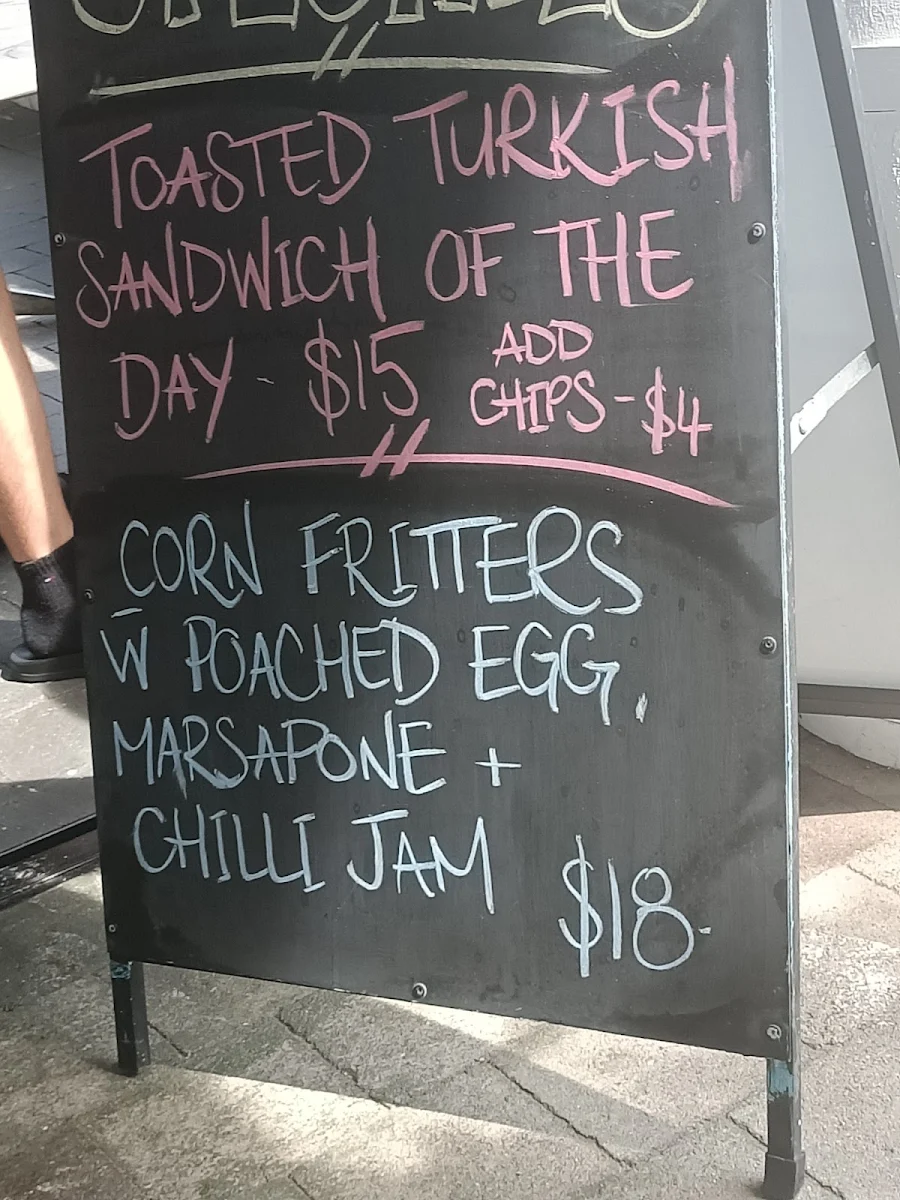 SPECIALS
TOASTED TURKISH
SANDWICH OF THE
DAY - $15 ADD
CHIPS - $4
CORN FRITTERS
W POACHED EGG,
MARSAPONE +
CHILLI JAM
$18-